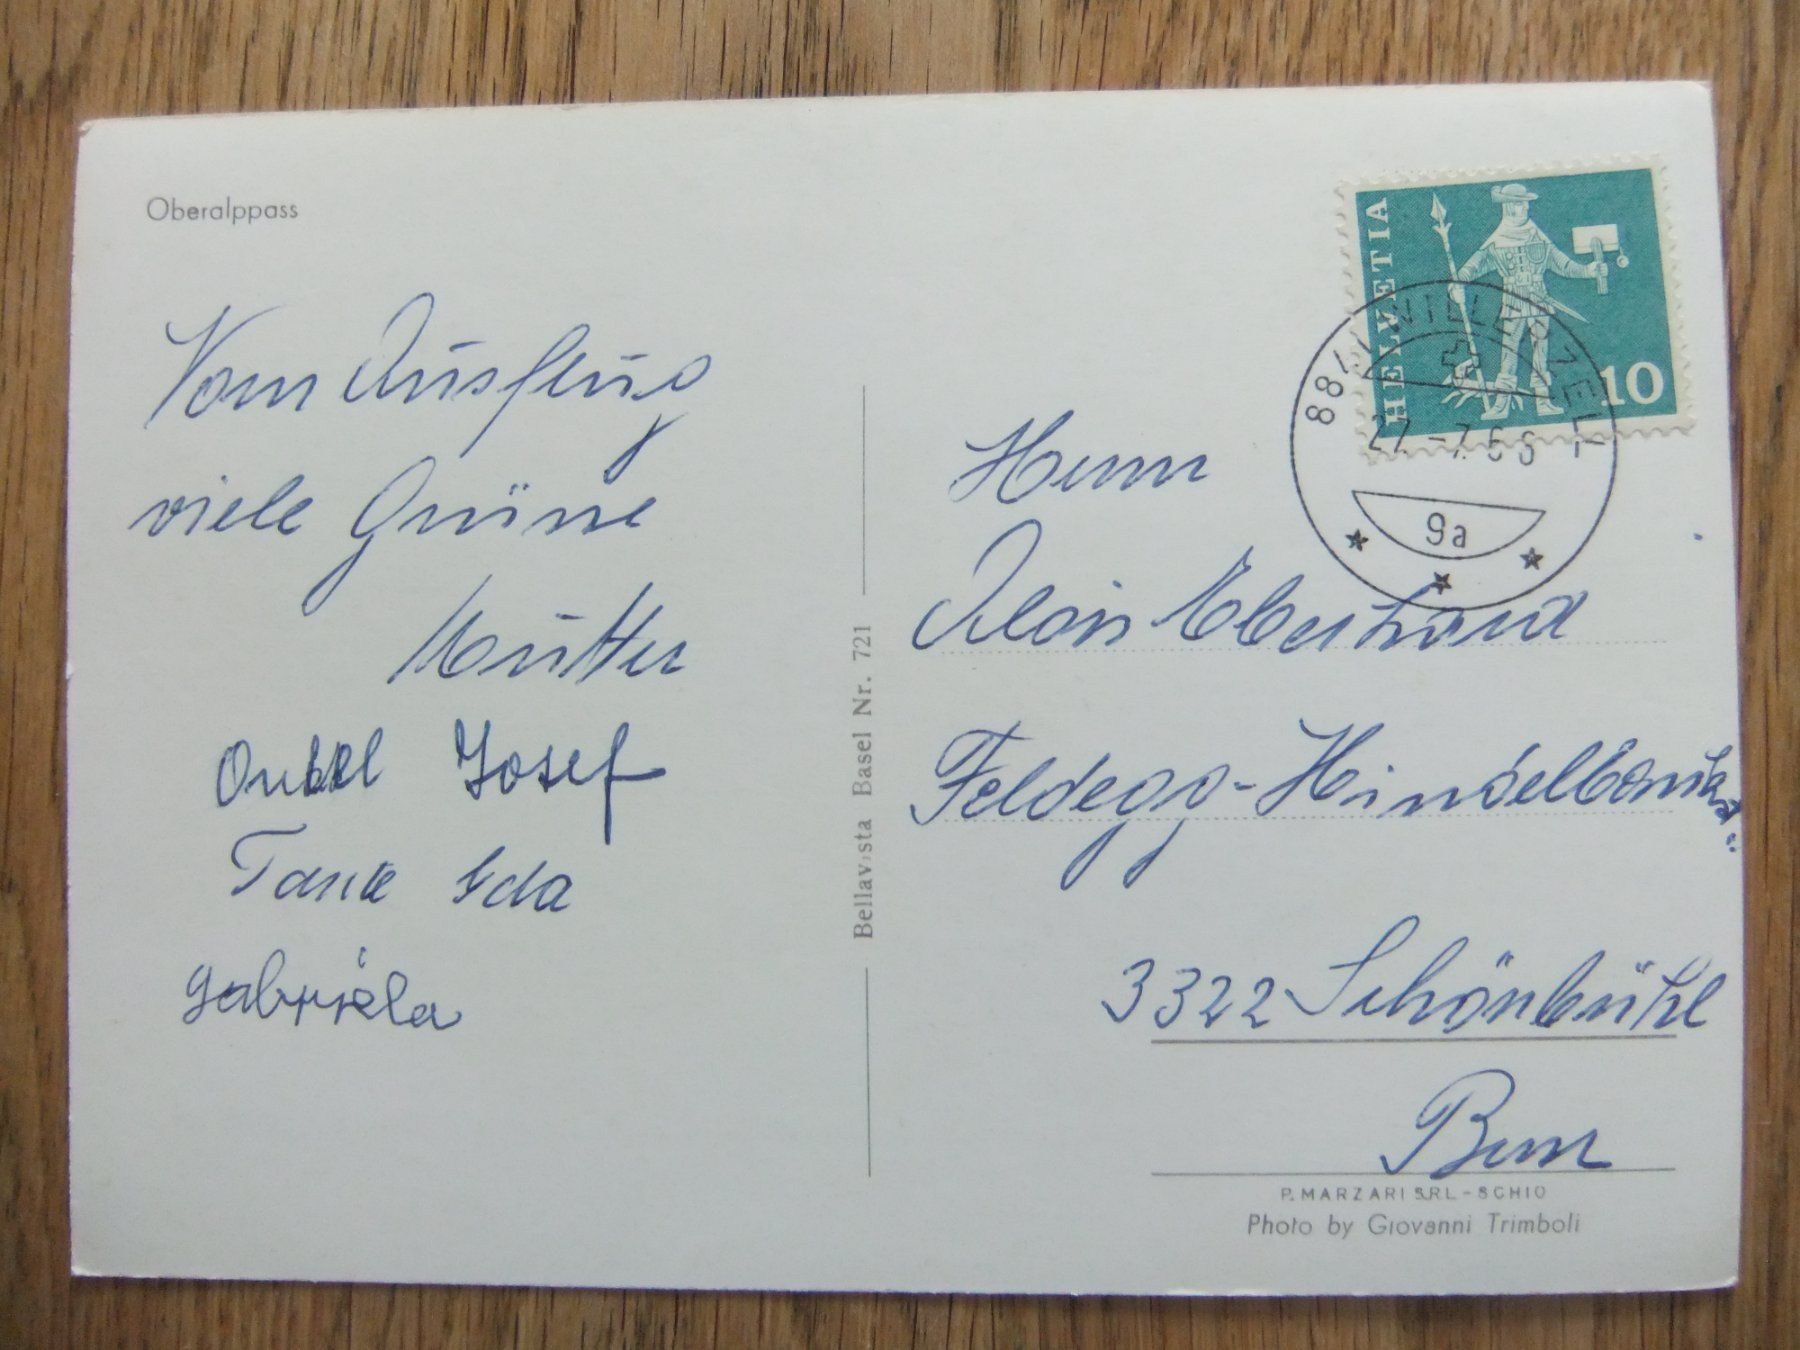 Oberalppass
Vom Ausflug
viele Grüsse
Mutter
Onkel Josef
Tante Ida
Gabriela
Bellavista Basel Nr. 721
HELVETIA
10
8841 WILLERZELL
27.-7.66
9a
Herrn
Alois Eberhard
Feldegg-Hindelbank
3322 Schönbühl
Bern
P. MARZARI S.R.L - SCHIO
Photo by Giovanni Trimboli